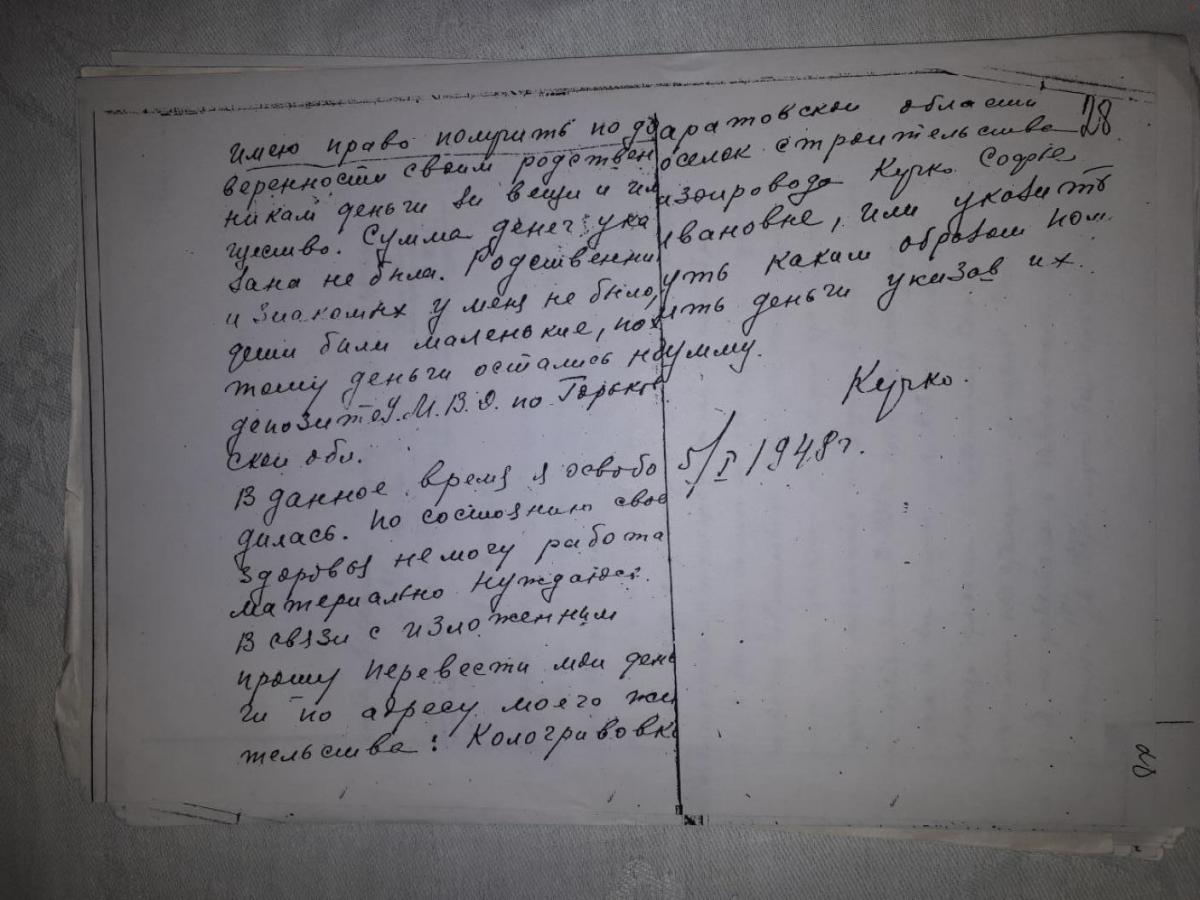 28
имею право получить по до
веренности своим родствен
никам деньги за вещи и им
щество. Сумма денег ука
зана не была. Родственни
и знакомых у меня не было,
дети были маленькие, по
тому деньги остались на
депозите У.М.В.Д. по Горьков
ской обл.
В данное время я освобо
дилась. По состоянию свое
здоровья не могу работа
материально нуждаюсь.
В связи с изложенным
прошу перевести мои день
ги по адресу моего жи
тельства: Кологривовк
аратовской области
оселок строительства
газопровода Кучко Софье
Ивановне, или указать
уть каким образом пол
ить деньги указав их
сумму.
Кучко.
5/I 1948г.
28